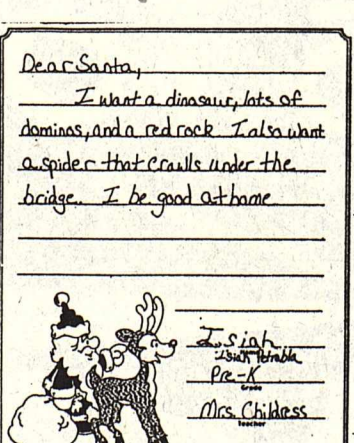 Dear Santa,
I want a dinosaur, lots of
dominos, and a red rock. I also want
a spider that crawls under the
bridge. I be good at home
Isiah
Isiah Petrabla
Pre-K
Grade
Mrs. Childress
Teacher